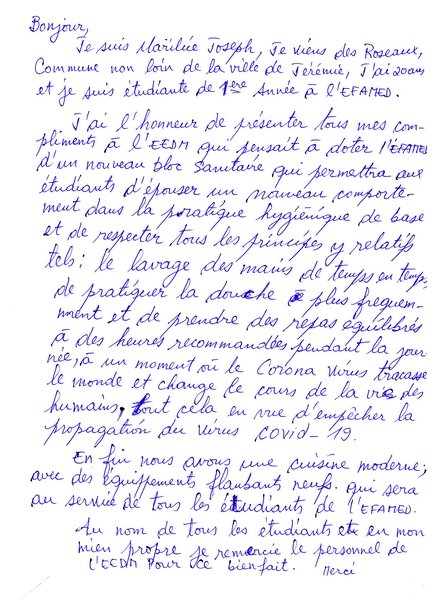 Bonjour,
Je suis Marilise Joseph, Je viens des Roseaux,
Commune non loin de la ville de Jérémie, J'ai 20 ans
et je suis étudiante de 1ère Année à l'EFAMED.
J'ai l'honneur de présenter tous mes com-
pliments à l'EEDM qui pensait à doter l'EFAMED
d'un nouveau bloc Sanitaire qui permettra aux
étudiants d'épouser un nouveau comporte-
ment dans la pratique hygiénique de base
et de respecter tous les principes y relatifs
tels : le lavage des mains de temps en temps,
de pratiquer la douche plus fréquem-
nment et de prendre des repas équilibrés
à des heures recommandées pendant la jour
née, à un moment où le Corona virus tracasse
le monde et change le cours de la vie des
humains, tout cela en vue d'empêcher la
propagation du virus COVID-19.
En fin nous avons une cuisine moderne;
avec des équippements flanbants neufs. qui sera
au service de tous les étudiants de l'EFAMED.
Au nom de tous les étudiants et en mon
mien propre je remercie le personnel de
l'ECDM Pour ce bienfait. Merci